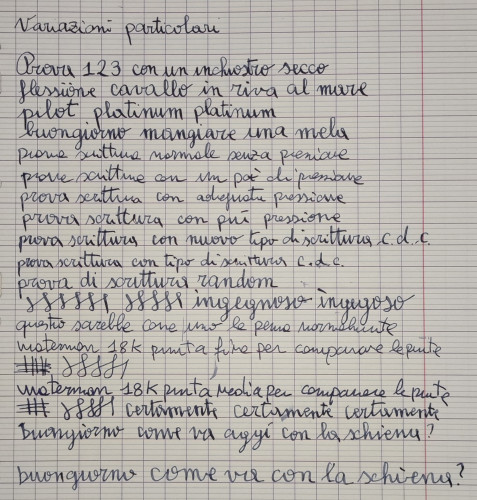 Variazioni particolari
Prova 123 con un inchiostro secco
flessiine cavallo in riva al mare
pilot platinum platinum
buongiorno mangiare una mela
prova scrittura normale senza pressione
prova scrittura con un po' di pressione
prova scrittura con adeguata pressione
prova scrittura con più pressione
prova scrittura con nuovo tipo di scrittura c.d.c.
prova scrittura con tipo di scrittura c.d.c.
prova di scrittura random
ingegnoso ingegoso
questo sarebbe come uso la penna normalmente
waterman 18K punta fine per comparare le punte
waterman 18K punta media per comparare le punte
certamente certamente certamente
buongiorno come va oggi con la schiena?
buongiorno come va con la schiena?